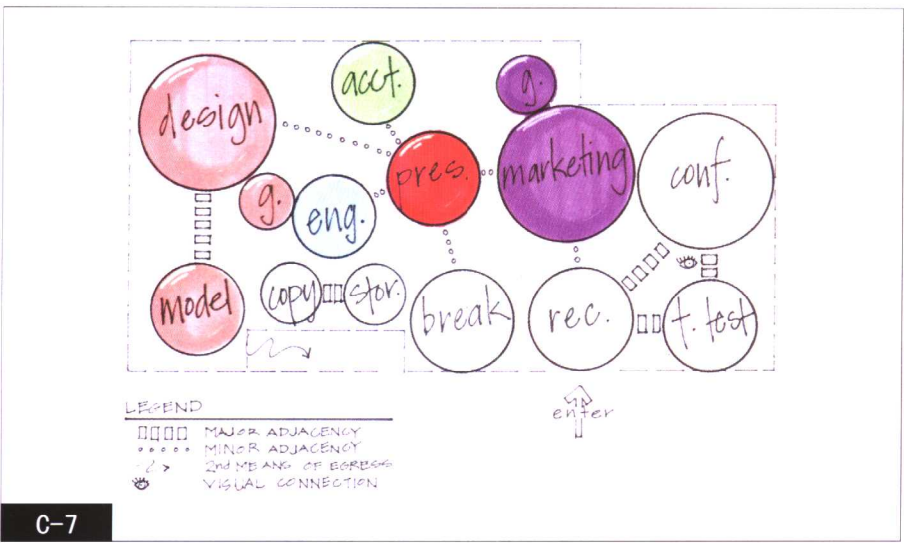 acct.
g.
design
pres.
marketing
conf.
g.
eng.
model
copy
stor.
break
rec.
t. test
enter
LEGEND
MAJOR ADJACENCY
MINOR ADJACENCY
2nd MEANS OF EGRESS
VISUAL CONNECTION
C-7